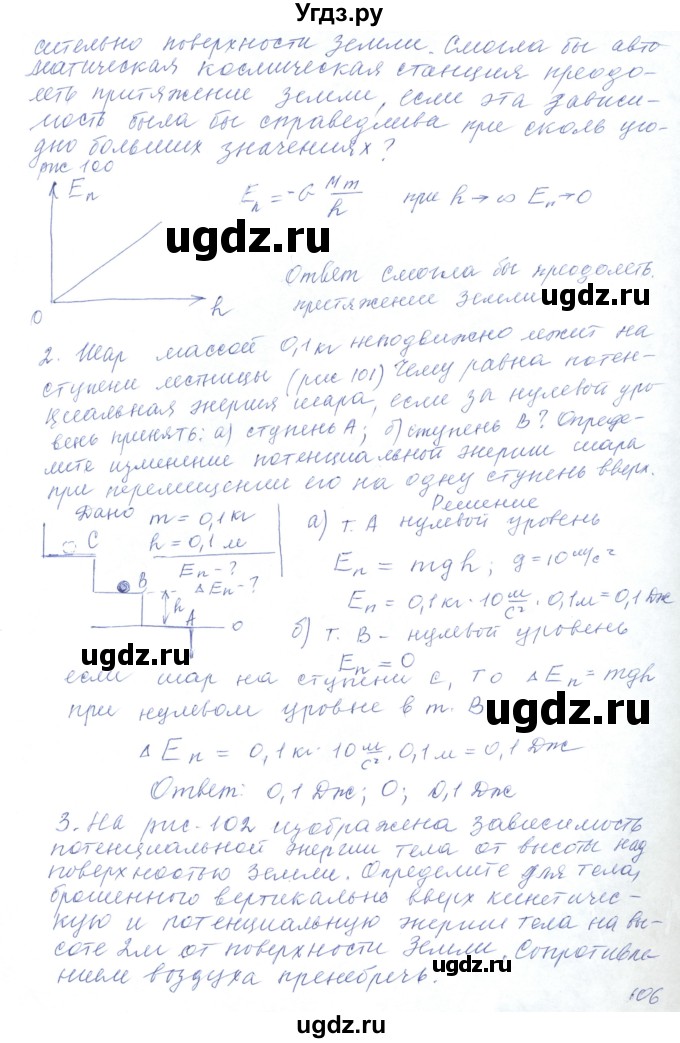 Угдз.ру
сительно поверхности Земли. Смогла бы авто
матическая космическая станция преодо-
леть притяжение Земли, если эта зависи-
мость была бы справедлива при сколь уго-
дно больших значениях?
рис 100
Eп
Eп = -G Mm/h при h → ∞ Eп → 0
ugdz.ru
Ответ смогла бы преодолеть.
притяжение Земли
ugdz.ru
0 h
2. Шар массой 0,1 кг неподвижно лежит на
ступени лестницы (рис 101) Чему равна потен-
циальная энергия шара, если за нулевой уро-
вень принять: а) ступень А; б) ступень В? Опреде-
лите изменение потенциальной энергии шара
при перемещении его на одну ступень вверх.
Дано m = 0,1 кг
h = 0,1 м
Eп - ?
Δ Eп - ?
C
B
h
A
0
Решение
а) т. А нулевой уровень
Eп = mgh; g = 10 м/с²
Eп = 0,1 кг · 10 м/с² · 0,1 м = 0,1 Дж
б) т. В - нулевой уровень
ugdz.ru
Eп = 0
если шар на ступени с, то Δ Eп = mgh
при нулевом уровне в т. В
ugdz.ru
Δ Eп = 0,1 кг · 10 м/с² · 0,1 м = 0,1 Дж
Ответ: 0,1 Дж; 0; 0,1 Дж
3. На рис. 102 изображена зависимость
потенциальной энергии тела от высоты над
поверхностью Земли. Определите для тела,
брошенного вертикально вверх кинетичес-
кую и потенциальную энергии тела на вы-
соте 2м от поверхности Земли. Сопротивле-
нием воздуха пренебречь.
ugdz.ru
106
ugdz.ru